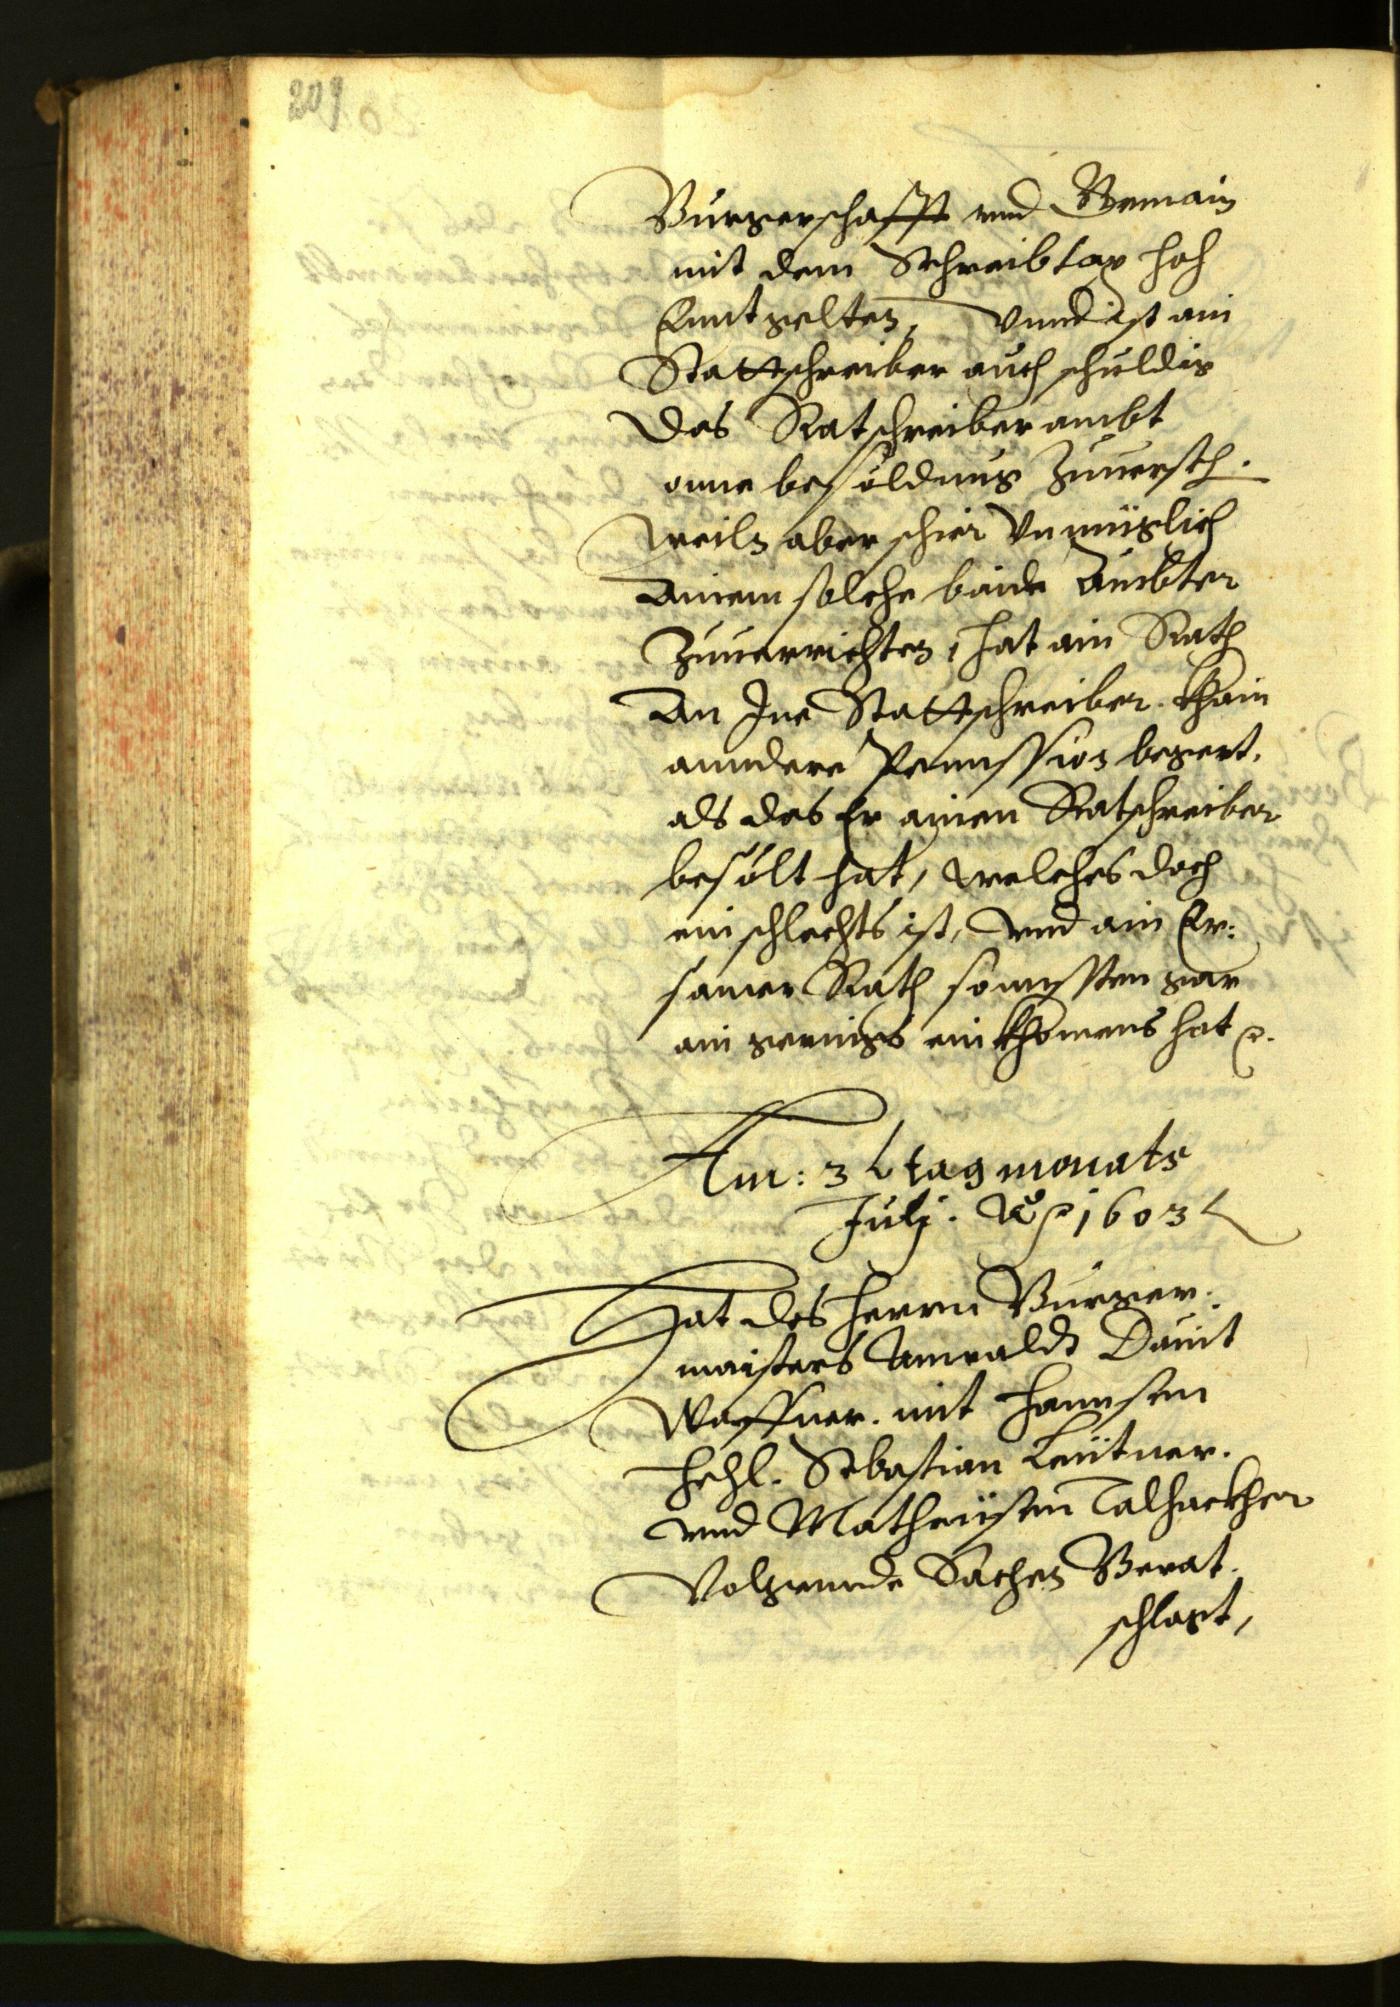 209
Burgerschafft vnd Gemain
mit dem Schreibtax hoch
Enntgelten, Vnnd ist ain
Stattschreiber auch schuldig
Das Ratschreiber ambt
onne besöldung Zuuersech.
Weiln aber schier Vnmüglich
Ainem solche baide Ämbter
Zuuerrichten, hat ain Rath
An Ine Stattschreiber. khain
anndere Pennssion begert,
als das Er ainen Ratschreiber
besölt hat, welches doch
ein schlechts ist, vnd ain Er:
samer Rath sonnsten gar
ain gerings einkhomens hat
Am: 3 tag monats
Julj. Ao 1603
Hat des herrn Burger:
maisters Anwaldt Dauit
Waffner. mit Hannsen
Hehl. Sebastian Leütner.
vnd Matheüsen Talhackher
Volgennde Sachen Berat.
schlagt,